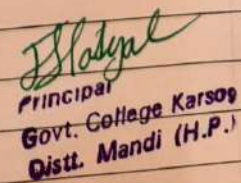 Principal
Govt. College Karsog
Distt. Mandi (H.P.)